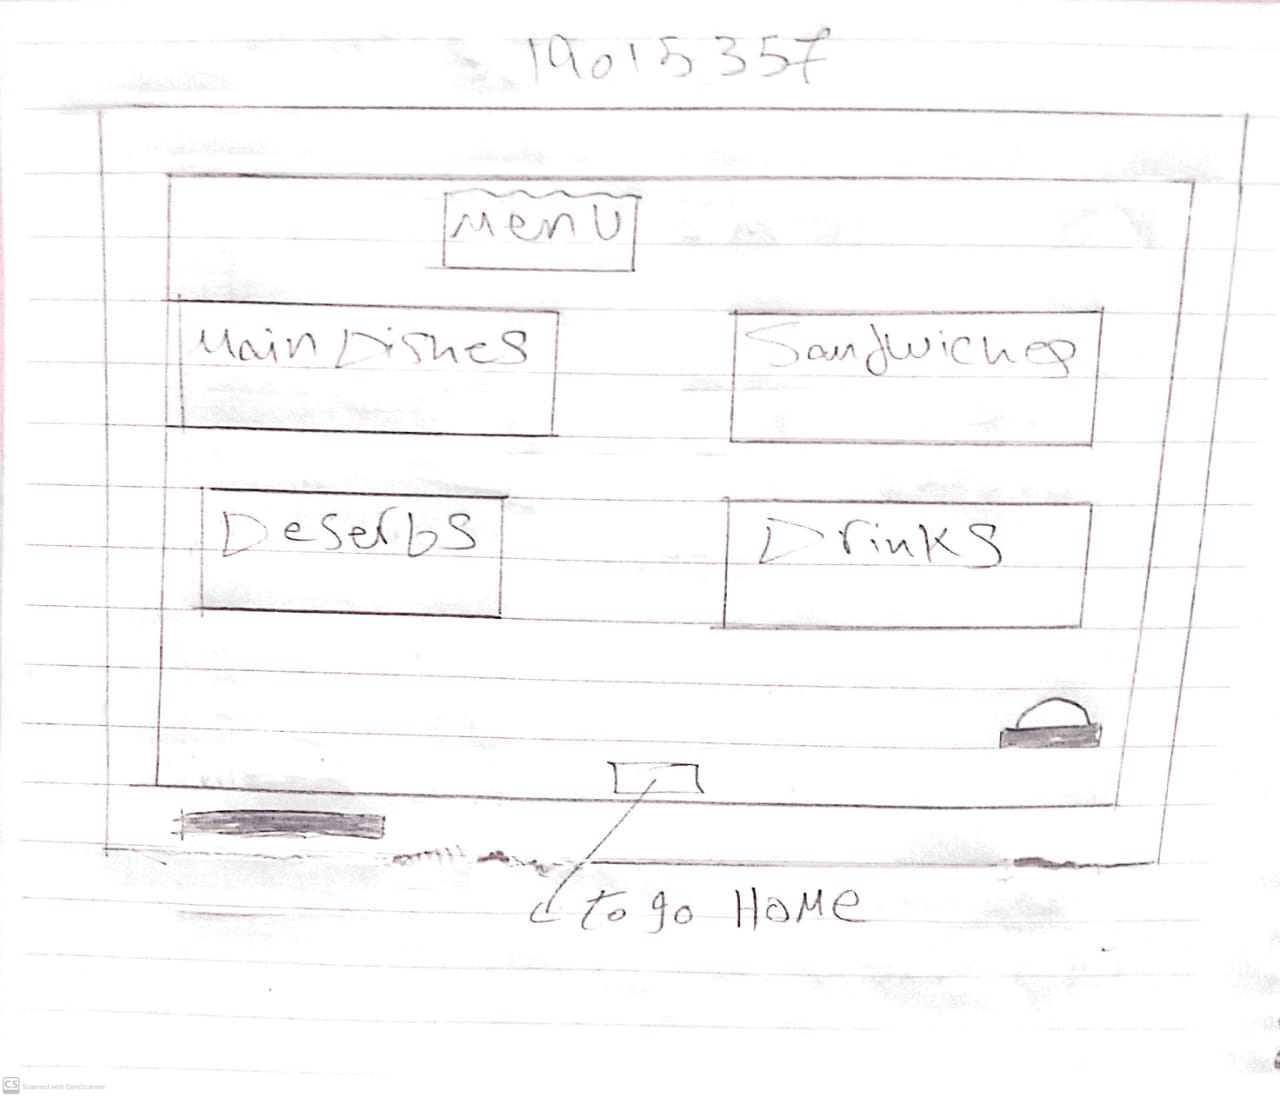 19015357
Menu
Main Dishes
Sandwiches
Deserts
Drinks
to go HOME
CS Scanned with CamScanner